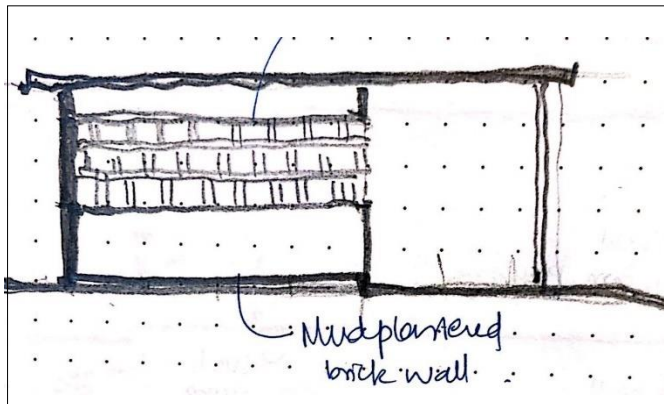 Mudplastered
brick wall.